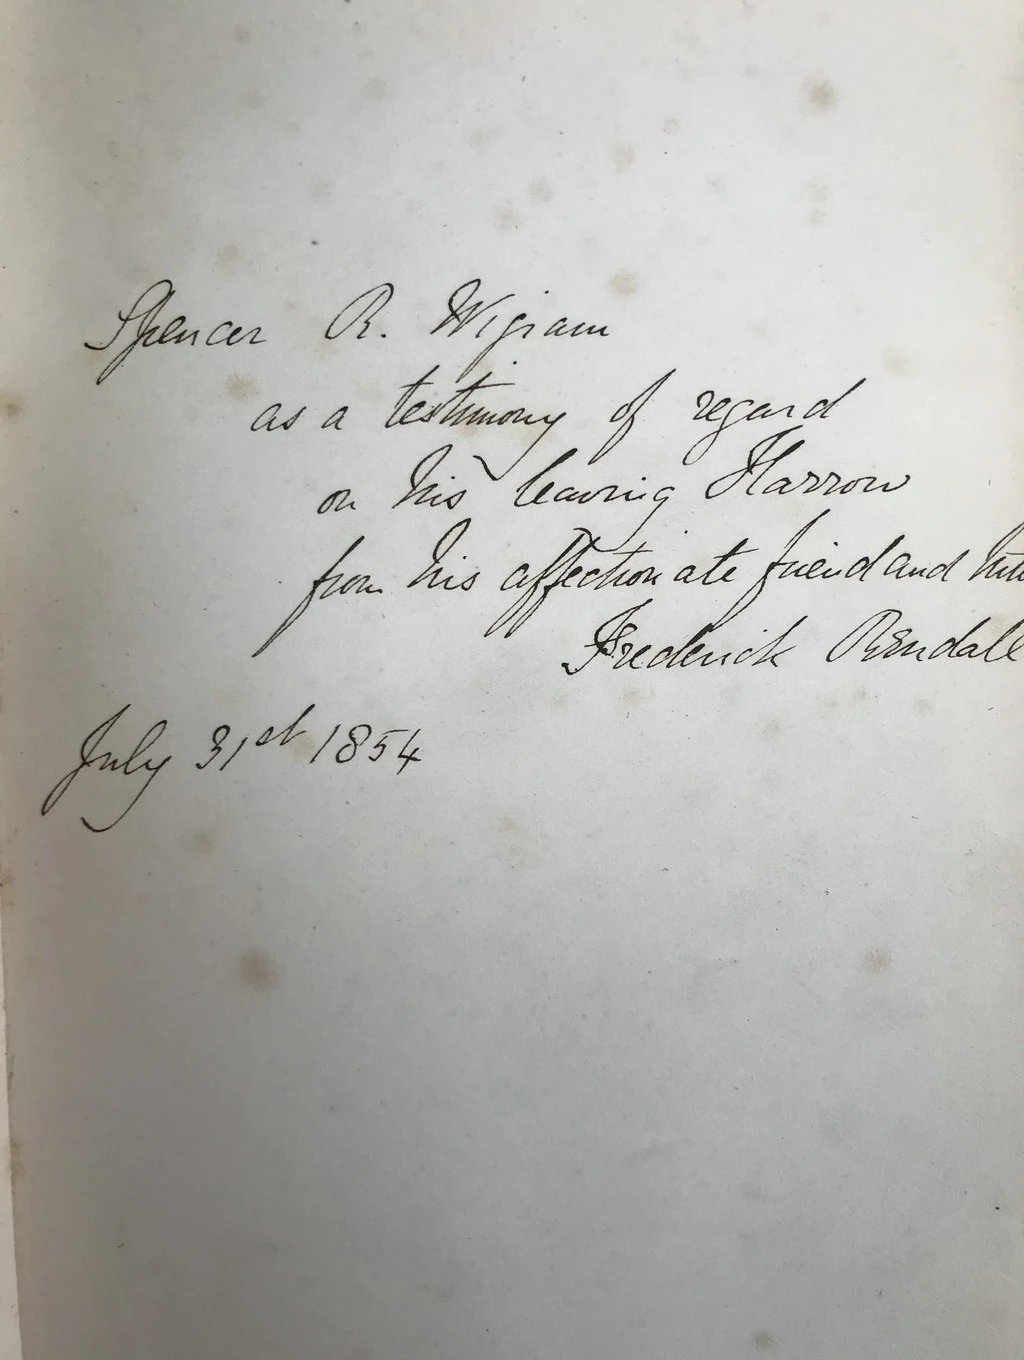 Spencer R. Wigram
as a testimony of regard
on his leaving Harrow
from his affectionate friend and
Frederick Rendall
July 31st 1854